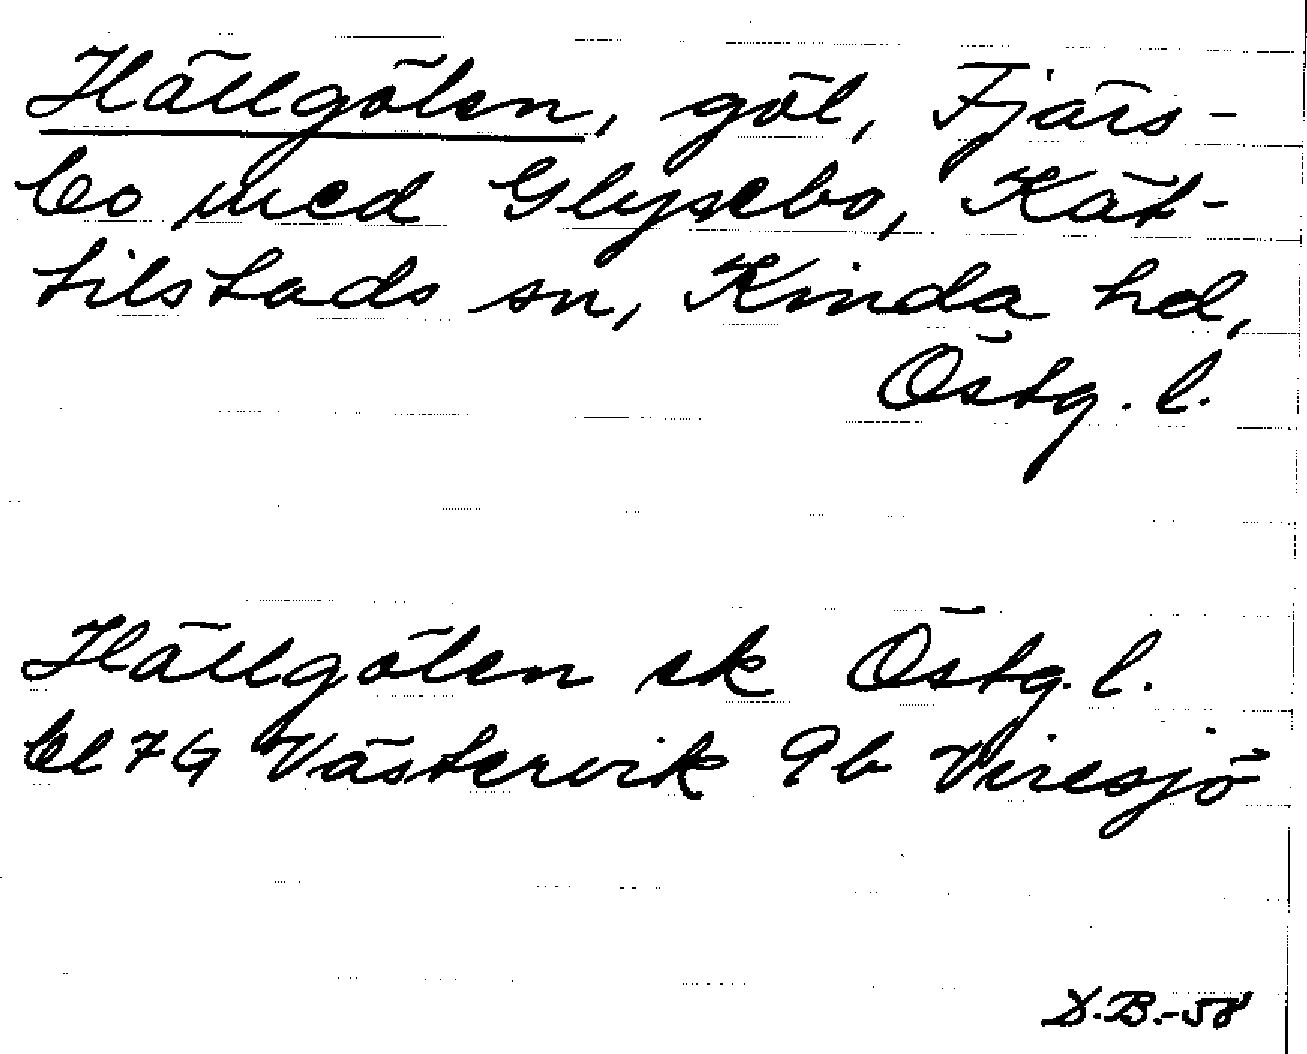 Hällgölen, göl, Fjärs-
bo med Glysebo, Kät-
tilstads sn, Kinda hd,
Östg. l.
Hällgölen ek Östg. l.
bl 7G Västervik 9b Viresjö
D.B.-58